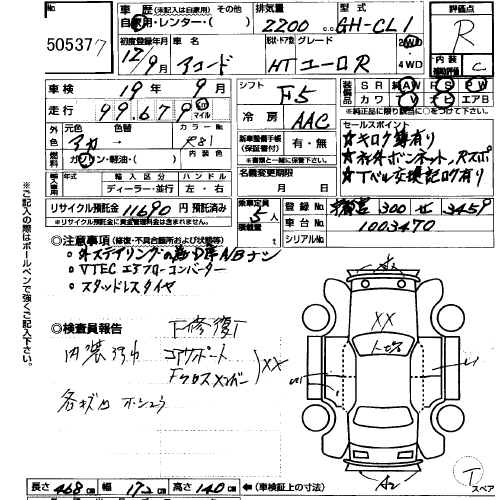 車 歴 (未記入は自家用) その他
自家用・レンター・( )
排気量
2200 cc
型 式
GH-CL1
評価点
R
505377
初度登録年月
12/9月
車 名
アコード
ドア・形状
HT
グレード
ユーロR
2WD・4WD
内 装
C
車 検 19年 9月
シフト
F5
装備品
SR 純AW PS PW
カワ TV ナビ エアB
*純正品に限り該当に○をつけて下さい
走 行 99,679 km マイル
冷 房
AAC
セールスポイント
☆キロク簿有り
☆社外ボンネット、Rスポ
☆Tベル交換記ロク有り
外色
元色 色替
アカ
カラーNo
R81
新車整備手帳
(保証書付)
有・無
*書類と一緒に保管下さい。
燃料
ガソリン・軽油・( )
内装色
輸入車
輸 入 区 分
ハンドル
ディーラー・並行
左・右
名義変更期限
月 日
リサイクル預託金 11690 円 預託済み
*リサイクル預託金に資金管理料金は含まれません。
乗車定員
5人
積載量
t
登録No
300 せ 3459
車台No
1003470
シリアルNo
※ご記入の際はボールペンで強くご記入下さい。
◎注意事項 (修復・不具合箇所および状態等)
・VTEC エアフローコンバーター
・スタッドレスタイヤ
◎検査員報告
下修復T
内装汚れ
コアサポート
Fクロスメンバー
XX
各キズ凹
A2
XX
A2
長さ 468 cm 幅 172 cm 高さ 140 cm ◀(車検証上の寸法)
T
スペア